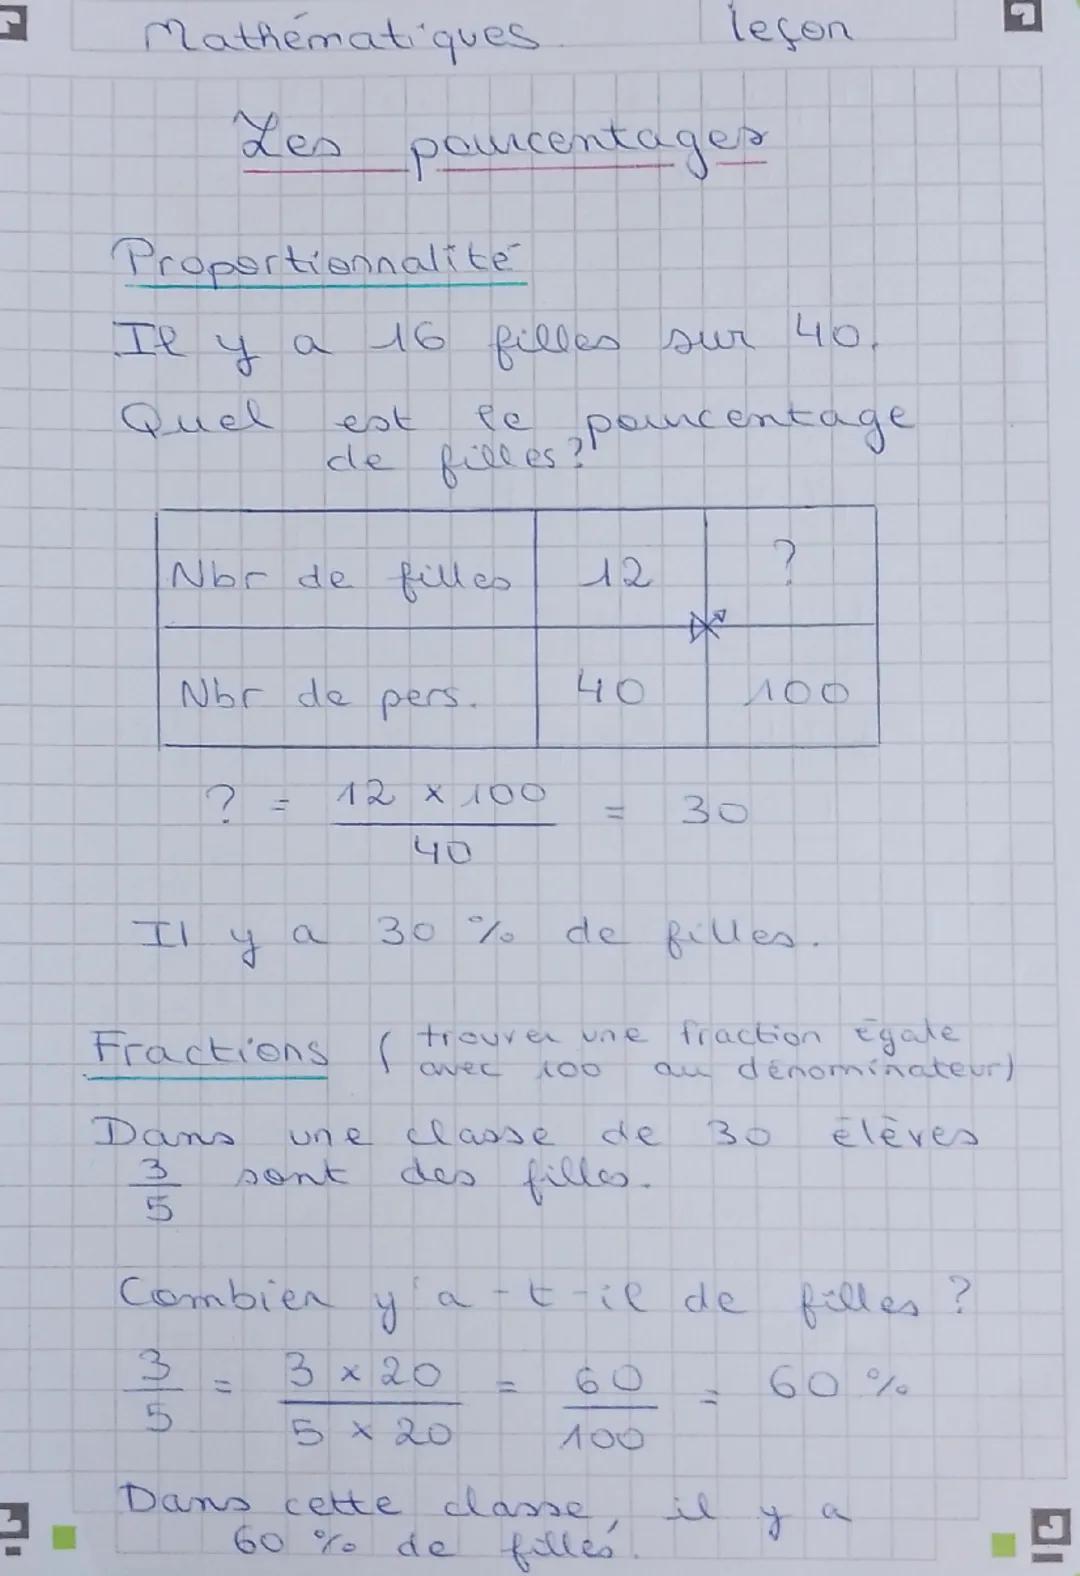 Mathématiques leçon
Les pourcentages
Proportionnalité
Il y a 16 filles sur 40.
Quel est le pourcentage
de filles ?
Nbr de filles 12 ?
Nbr de pers. 40 100
? = 12 x 100 / 40 = 30
Il y a 30 % de filles.
Fractions ( trouver une fraction égale
avec 100 au dénominateur)
Dans une classe de 30 élèves
3/5 sont des filles.
Combien y a-t-il de filles ?
3/5 = 3 x 20 / 5 x 20 = 60/100 = 60 %
Dans cette classe, il y a
60 % de filles.